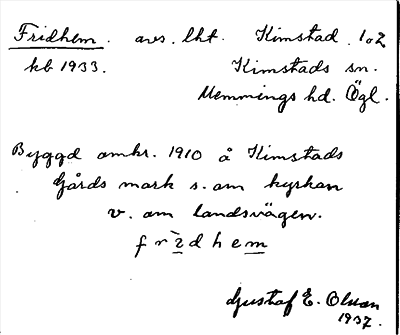 Fridhem. avs. lht. Kimstad 1o2
kb 1933. Kimstads sn.
Memmings hd. Ögl.
Byggd omkr. 1910 å Kimstads
Gårds mark s. om kyrkan
v. om landsvägen.
frìdhem
Gustaf E. Olsson
1937.